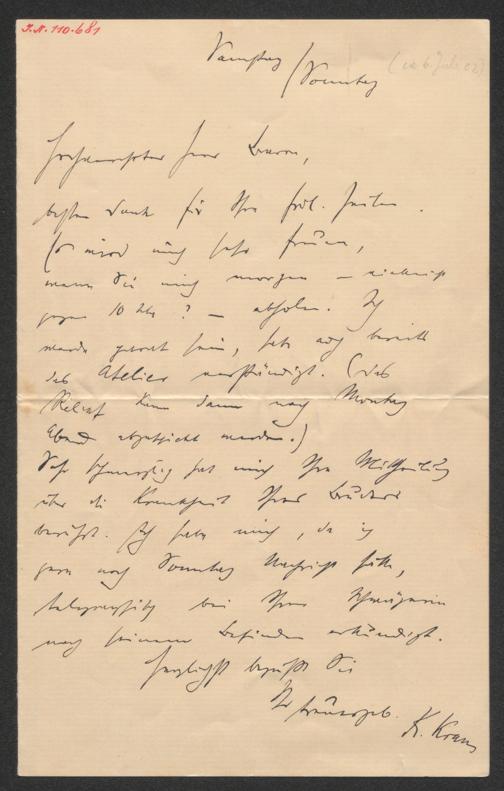 J.N. 110.681
Samstag / Sonntag
(ca 6. Juli 02)
Hochverehrter Herr Baron,
besten Dank für Ihre frdl. Zeilen.
Es wird mich sehr freuen,
wenn Sie mich morgen – vielleicht
gegen 10 Uhr? – abholen. Ich
werde bereit sein, habe auch bereits
das Atelier verständigt. (Das
Relief kann dann noch Montag
Abend abgeschickt werden.)
Sehr schmerzlich hat mich Ihre Mittheilung
über die Krankheit Ihres Bruders
berührt. Ich habe mich, da ich
gern noch Sonntag Nachricht hätte,
telegraphisch bei Ihrer Schwägerin
nach seinem Befinden erkundigt.
Herzlichst begrüßt Sie
Ihr treuergeb.
K. Kraus